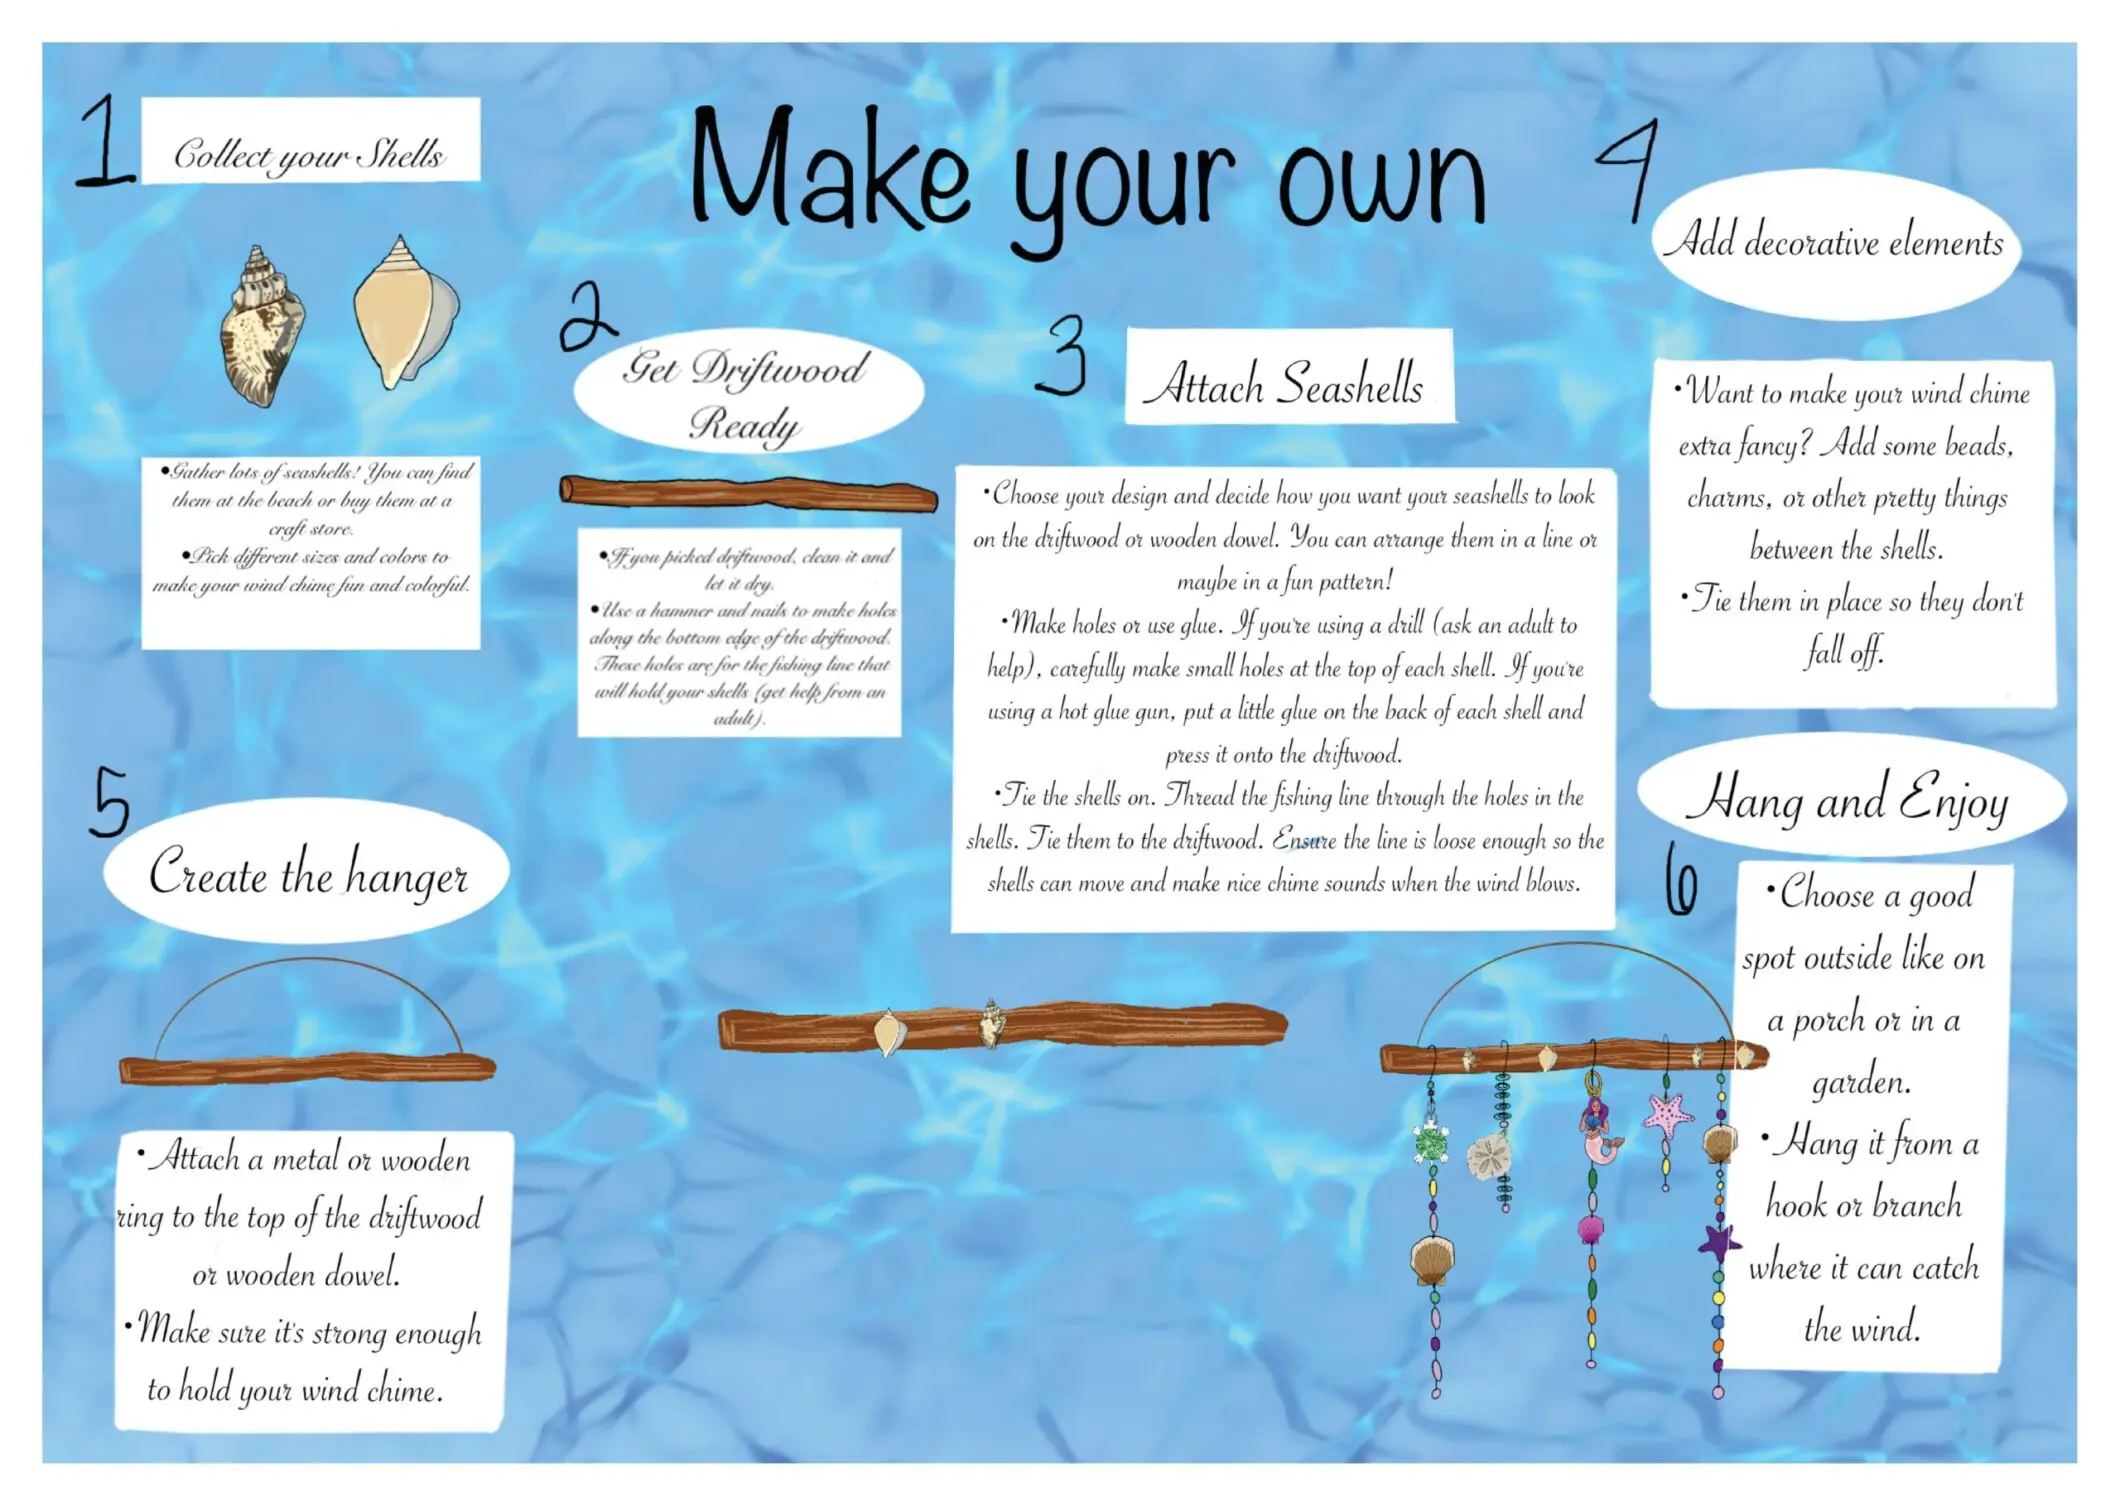 Make your own
1
Collect your Shells
•Gather lots of seashells! You can find
them at the beach or buy them at a
craft store.
•Pick different sizes and colors to
make your wind chime fun and colorful.
2
Get Driftwood
Ready
•If you picked driftwood, clean it and
let it dry.
•Use a hammer and nails to make holes
along the bottom edge of the driftwood.
These holes are for the fishing line that
will hold your shells (get help from an
adult).
3
Attach Seashells
•Choose your design and decide how you want your seashells to look
on the driftwood or wooden dowel. You can arrange them in a line or
maybe in a fun pattern!
•Make holes or use glue. If you're using a drill (ask an adult to
help), carefully make small holes at the top of each shell. If you're
using a hot glue gun, put a little glue on the back of each shell and
press it onto the driftwood.
•Tie the shells on. Thread the fishing line through the holes in the
shells. Tie them to the driftwood. Ensure the line is loose enough so the
shells can move and make nice chime sounds when the wind blows.
4
Add decorative elements
•Want to make your wind chime
extra fancy? Add some beads,
charms, or other pretty things
between the shells.
•Tie them in place so they don't
fall off.
5
Create the hanger
•Attach a metal or wooden
ring to the top of the driftwood
or wooden dowel.
•Make sure it's strong enough
to hold your wind chime.
Hang and Enjoy
6
•Choose a good
spot outside like on
a porch or in a
garden.
•Hang it from a
hook or branch
where it can catch
the wind.